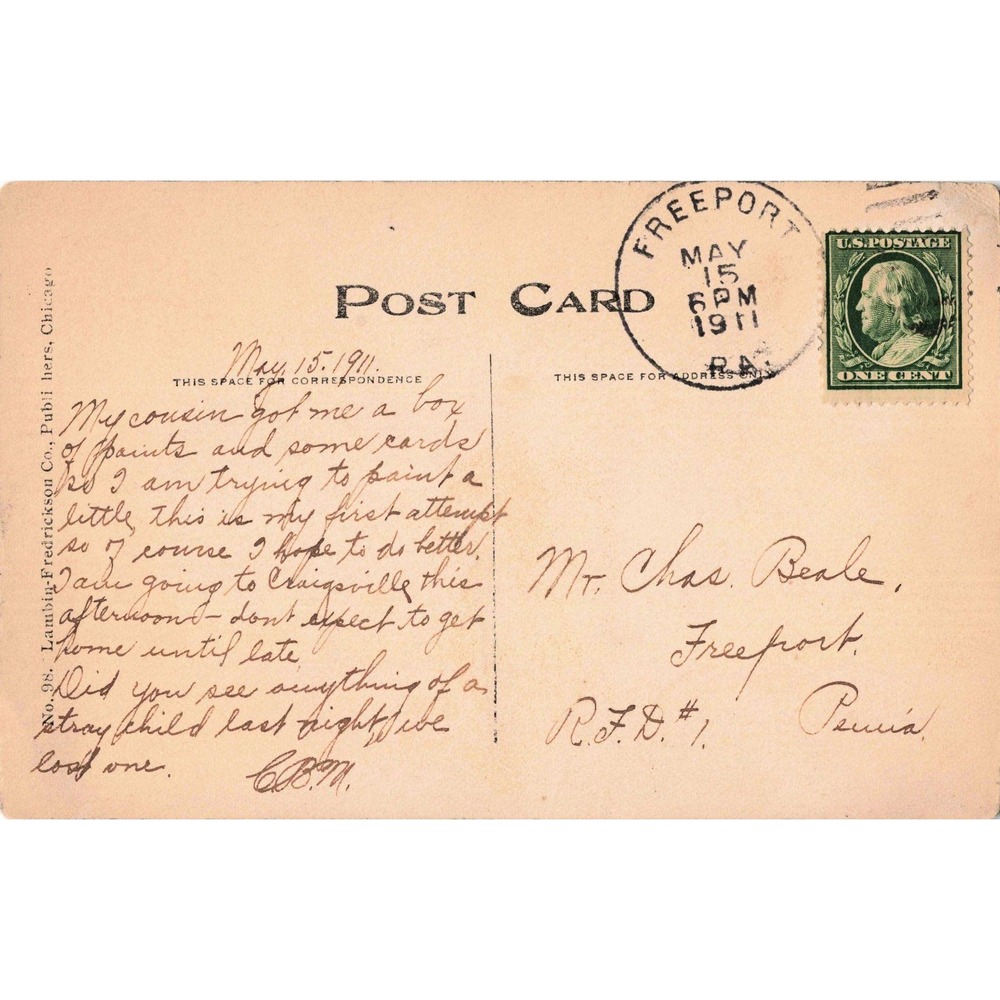 FREEPORT
MAY
15
6 PM
1911
PA.
U.S. POSTAGE
ONE CENT
POST CARD
THIS SPACE FOR CORRESPONDENCE
THIS SPACE FOR ADDRESS ONLY
No. 98. Lambin-Fredrickson Co., Publi hers, Chicago
May. 15. 1911.
My cousin got me a box
of paints and some cards
so I am trying to paint a
little, this is my first attempt
so of course I hope to do better.
I am going to Craigsville this
afternoon - dont expect to get
home until late.
Did you see anything of a
stray child last night, I've
lost one.
C.B.M.
Mr. Chas. Beale,
Freeport.
R.F.D. #1. Penn'a.